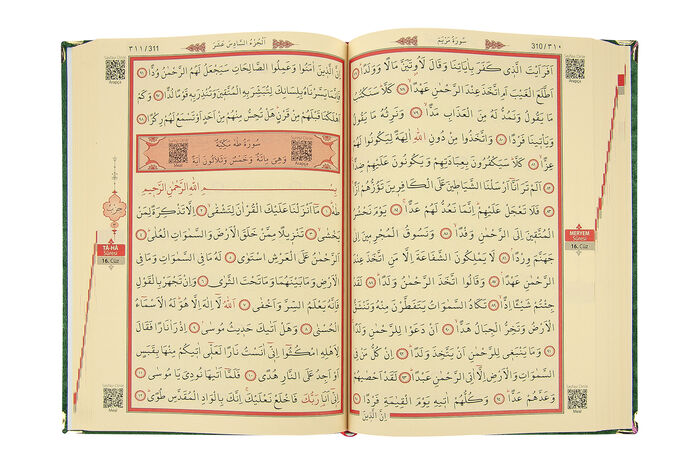 سُورَةُ مَرْيَمَ
310/٣١٠
اَفَرَاَيْتَ الَّذٖي كَفَرَ بِاٰيَاتِنَا وَقَالَ لَاُوتَيَنَّ مَالًا وَوَلَدًاۜ ﴿٧٧﴾
اَطَّلَعَ الْغَيْبَ اَمِ اتَّخَذَ عِنْدَ الرَّحْمٰنِ عَهْدًاۙ ﴿٧٨﴾ كَلَّاۜ سَنَكْتُبُ
مَا يَقُولُ وَنَمُدُّ لَهُ مِنَ الْعَذَابِ مَدًّاۙ ﴿٧٩﴾ وَنَرِثُهُ مَا يَقُولُ
وَيَأْتٖينَا فَرْدًا ﴿٨٠﴾ وَاتَّخَذُوا مِنْ دُونِ اللّٰهِ اٰلِهَةً لِيَكُونُوا لَهُمْ
عِزًّاۙ ﴿٨١﴾ كَلَّاۜ سَيَكْفُرُونَ بِعِبَادَتِهِمْ وَيَكُونُونَ عَلَيْهِمْ ضِدًّا
﴿٨٢﴾ اَلَمْ تَرَ اَنَّٓا اَرْسَلْنَا الشَّيَاطٖينَ عَلَى الْكَافِرٖينَ تَؤُزُّهُمْ اَزًّاۙ
﴿٨٣﴾ فَلَا تَعْجَلْ عَلَيْهِمْۜ اِنَّمَا نَعُدُّ لَهُمْ عَدًّاۚ ﴿٨٤﴾ يَوْمَ نَحْشُرُ
الْمُتَّقٖينَ اِلَى الرَّحْمٰنِ وَفْدًاۙ ﴿٨٥﴾ وَنَسُوقُ الْمُجْرِمٖينَ اِلٰى
جَهَنَّمَ وِرْدًاۢ ﴿٨٦﴾ لَا يَمْلِكُونَ الشَّفَاعَةَ اِلَّا مَنِ اتَّخَذَ عِنْدَ
الرَّحْمٰنِ عَهْدًاۢ ﴿٨٧﴾ وَقَالُوا اتَّخَذَ الرَّحْمٰنُ وَلَدًاۜ ﴿٨٨﴾ لَقَدْ
جِئْتُمْ شَيْـًٔا اِدًّاۙ ﴿٨٩﴾ تَكَادُ السَّمٰوَاتُ يَتَفَطَّرْنَ مِنْهُ وَتَنْشَقُّ
الْاَرْضُ وَتَخِرُّ الْجِبَالُ هَدًّاۙ ﴿٩٠﴾ اَنْ دَعَوْا لِلرَّحْمٰنِ وَلَدًاۚ
﴿٩١﴾ وَمَا يَنْبَغٖي لِلرَّحْمٰنِ اَنْ يَتَّخِذَ وَلَدًاۜ ﴿٩٢﴾ اِنْ كُلُّ مَنْ فِي
السَّمٰوَاتِ وَالْاَرْضِ اِلَّٓا اٰتِي الرَّحْمٰنِ عَبْدًاۜ ﴿٩٣﴾ لَقَدْ اَحْصٰيهُمْ
وَعَدَّهُمْ عَدًّاۜ ﴿٩٤﴾ وَكُلُّهُمْ اٰتٖيهِ يَوْمَ الْقِيٰمَةِ فَرْدًا ﴿٩٥﴾
اِنَّ الَّذٖينَ
Arapça
MERYEM
Sûresi
16. Cüz
Meal
اَلْجُزْءُ السَّادِسَ عَشَرَ
٣١١/311
اِنَّ الَّذٖينَ اٰمَنُوا وَعَمِلُوا الصَّالِحَاتِ سَيَجْعَلُ لَهُمُ الرَّحْمٰنُ وُدًّا ﴿٩٦﴾
فَاِنَّمَا يَسَّرْنَاهُ بِلِسَانِكَ لِتُبَشِّرَ بِهِ الْمُتَّقٖينَ وَتُنْذِرَ بِهٖ قَوْمًا لُدًّا ﴿٩٧﴾ وَكَمْ
اَهْلَكْنَا قَبْلَهُمْ مِنْ قَرْنٍۜ هَلْ تُحِسُّ مِنْهُمْ مِنْ اَحَدٍ اَوْ تَسْمَعُ لَهُمْ رِكْزًا ﴿٩٨﴾
سُورَةُ طٰهٰ مَكِّيَّةٌ
وَهِيَ مِائَةٌ وَخَمْسٌ وَثَلَاثُونَ اٰيَةً
بِسْمِ اللّٰهِ الرَّحْمٰنِ الرَّحٖيمِ
طٰهٰۜ ﴿١﴾ مَٓا اَنْزَلْنَا عَلَيْكَ الْقُرْاٰنَ لِتَشْقٰىۙ ﴿٢﴾ اِلَّا تَذْكِرَةً لِمَنْ
يَخْشٰىۙ ﴿٣﴾ تَنْزٖيلًا مِمَّنْ خَلَقَ الْاَرْضَ وَالسَّمٰوَاتِ الْعُلٰىۜ ﴿٤﴾
اَلرَّحْمٰنُ عَلَى الْعَرْشِ اسْتَوٰى ﴿٥﴾ لَهُ مَا فِي السَّمٰوَاتِ وَمَا فِي
الْاَرْضِ وَمَا بَيْنَهُمَا وَمَا تَحْتَ الثَّرٰى ﴿٦﴾ وَاِنْ تَجْهَرْ بِالْقَوْلِ
فَاِنَّهُ يَعْلَمُ السِّرَّ وَاَخْفٰى ﴿٧﴾ اَللّٰهُ لَٓا اِلٰهَ اِلَّا هُوَۜ لَهُ الْاَسْمَٓاءُ
الْحُسْنٰى ﴿٨﴾ وَهَلْ اَتٰيكَ حَدٖيثُ مُوسٰىۢ ﴿٩﴾ اِذْ رَاٰ نَارًا فَقَالَ
لِاَهْلِهِ امْكُثُٓوا اِنّٖٓي اٰنَسْتُ نَارًا لَعَلّٖٓي اٰتٖيكُمْ مِنْهَا بِقَبَسٍ
اَوْ اَجِدُ عَلَى النَّارِ هُدًى ﴿١٠﴾ فَلَمَّٓا اَتٰيهَا نُودِيَ يَا مُوسٰى ﴿١١﴾
اِنّٖٓي اَنَا۬ رَبُّكَ فَاخْلَعْ نَعْلَيْكَۚ اِنَّكَ بِالْوَادِ الْمُقَدَّسِ طُوًىۜ ﴿١٢﴾
Arapça
TÂ-HÂ
Sûresi
16. Cüz
Meal